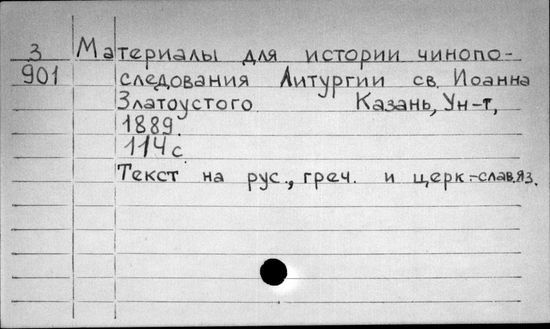 3 Материалы для истории чинопо-
901 следования Литургии св. Иоанна
Златоустого Казань, Ун-т,
1889.
114 с
Текст на рус., греч. и церк.-слав.яз.